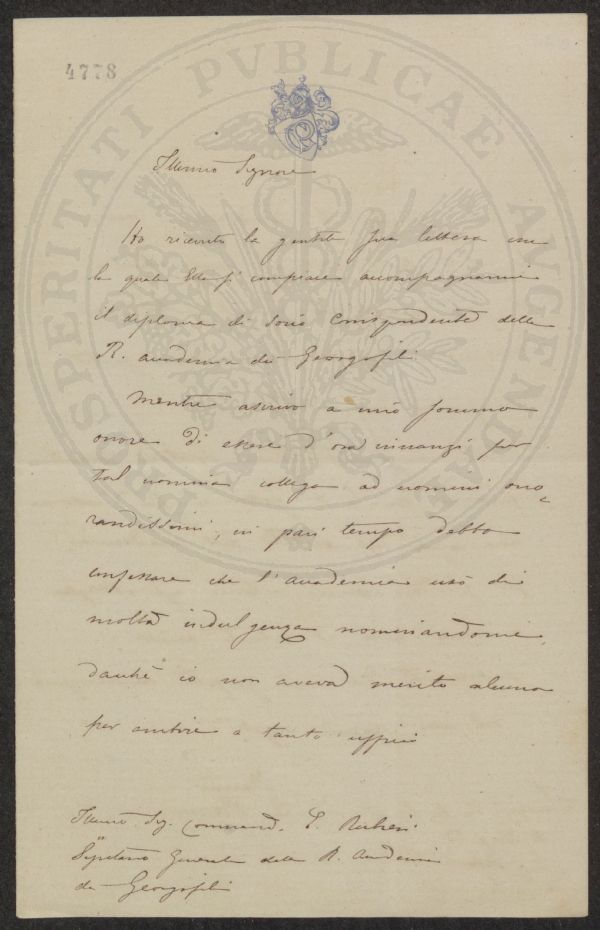 4778
PROSPERITATI PVBLICAE AVGENDAE
Illmo Signore
Ho ricevuto la gentile Sua lettera con
la quale Ella si compiace accompagnarmi
il diploma di Socio Corrispondente della
R. accademia dei Georgofili.
Mentre ascrivo a mio sommo
onore di essere d'ora innanzi per
tal nomina collega ad uomini ono-
randissimi, in pari tempo debbo
confessare che l'accademia usò di
molta indulgenza nominandomi,
dacchè io non aveva merito alcuno
per ambire a tanto ufficio
Illmo Sig. Command. E. Rubieri
Segretario Generale della R. Accademia
dei Georgofili